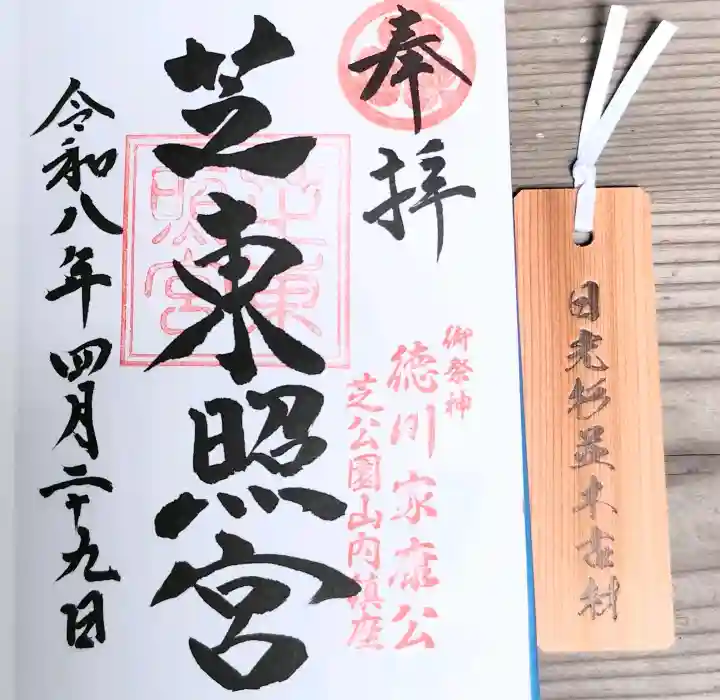 奉拝
芝東照宮
令和八年四月二十九日
御祭神
徳川家康公
芝公園山内鎮座
芝東照宮
日光杉並木古材